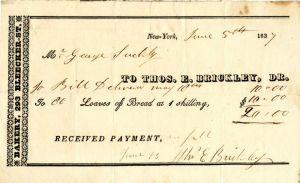 BAKER, 293 BLEECKER-ST.
New-York, June 5th 1837
Mr. George
TO THOS. E. BRICKLEY, DR.
To Bill Delivered may 10.00
To 80 Loaves of Bread at 1 shilling, $10.00
20.00
RECEIVED PAYMENT, in full
June 15 Thos E Brickley